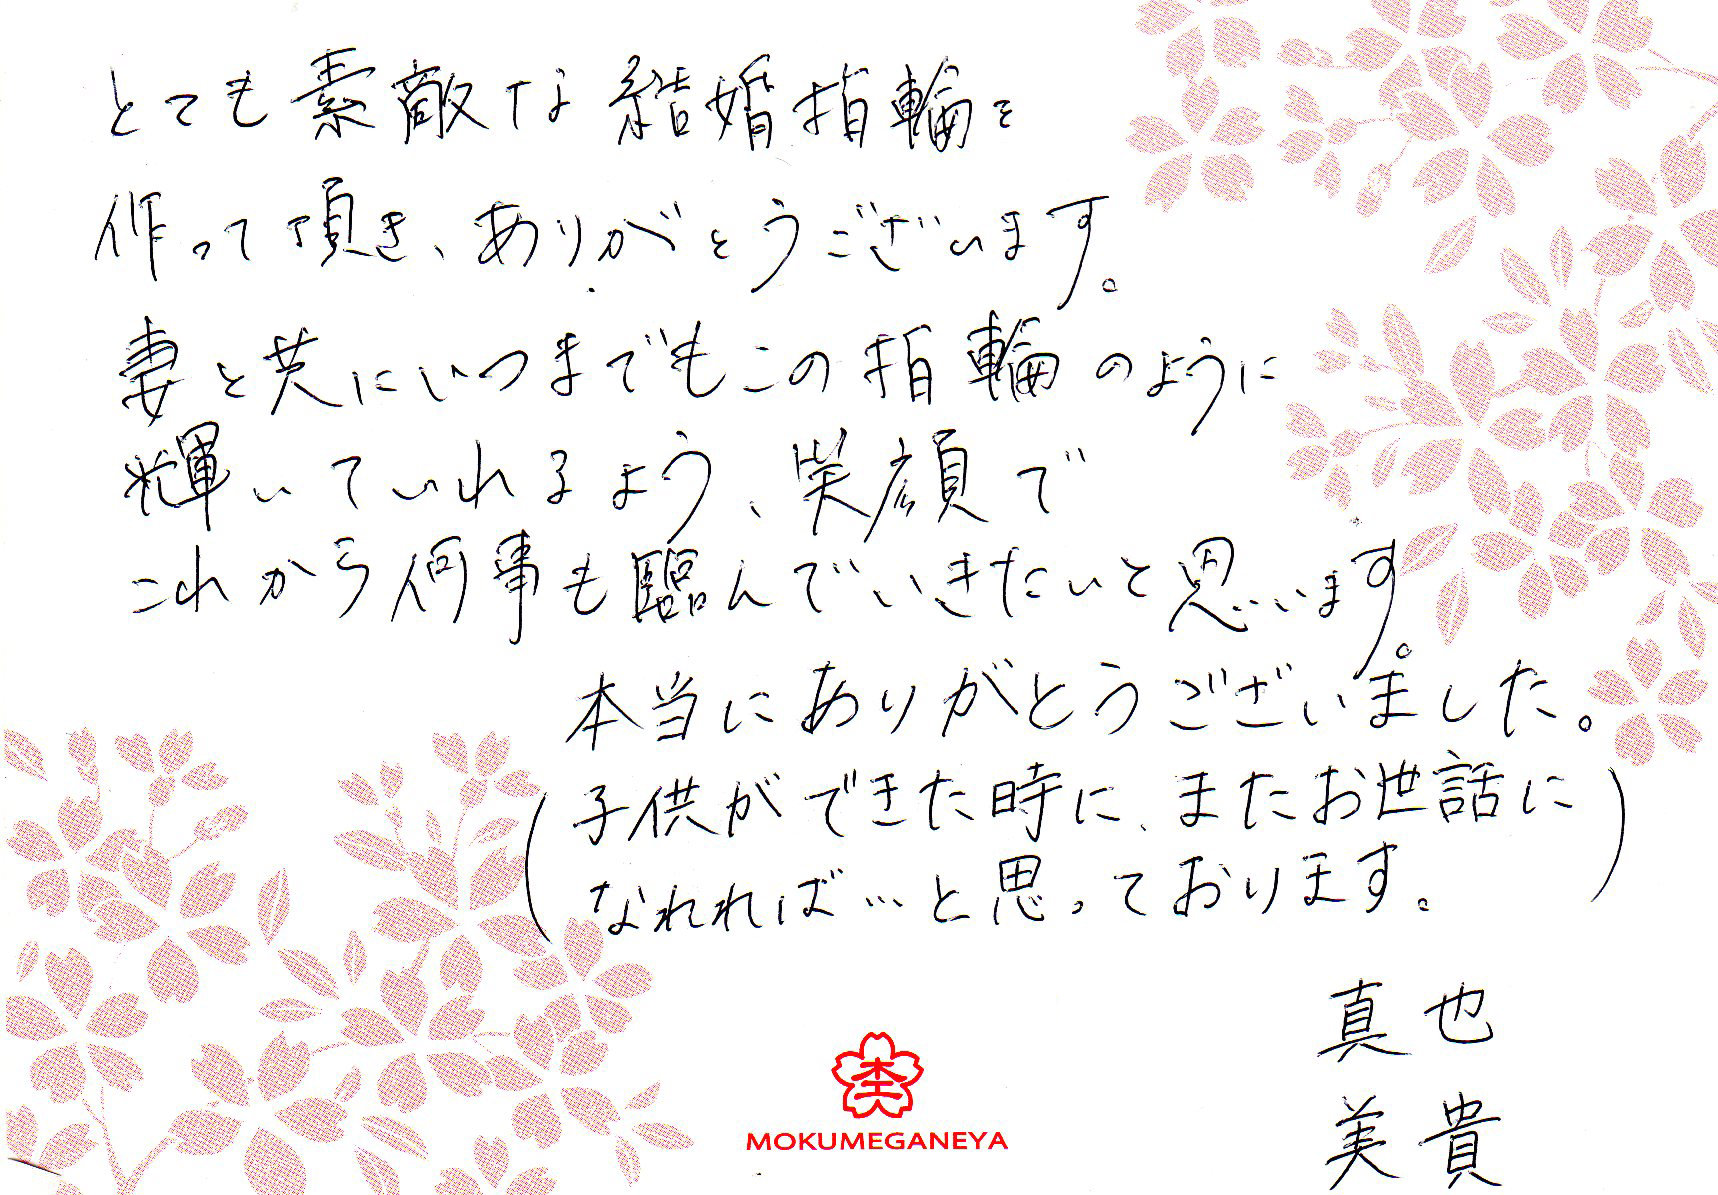 とても素敵な結婚指輪を
作って頂き、ありがとうございます。
妻と共にいつまでもこの指輪のように
輝いていれるよう、笑顔で
これから何事も臨んでいきたいと思います。
本当にありがとうございました。
(子供ができた時に、またお世話に
なれれば…と思っております。)
真也
美貴
MOKUMEGANEYA